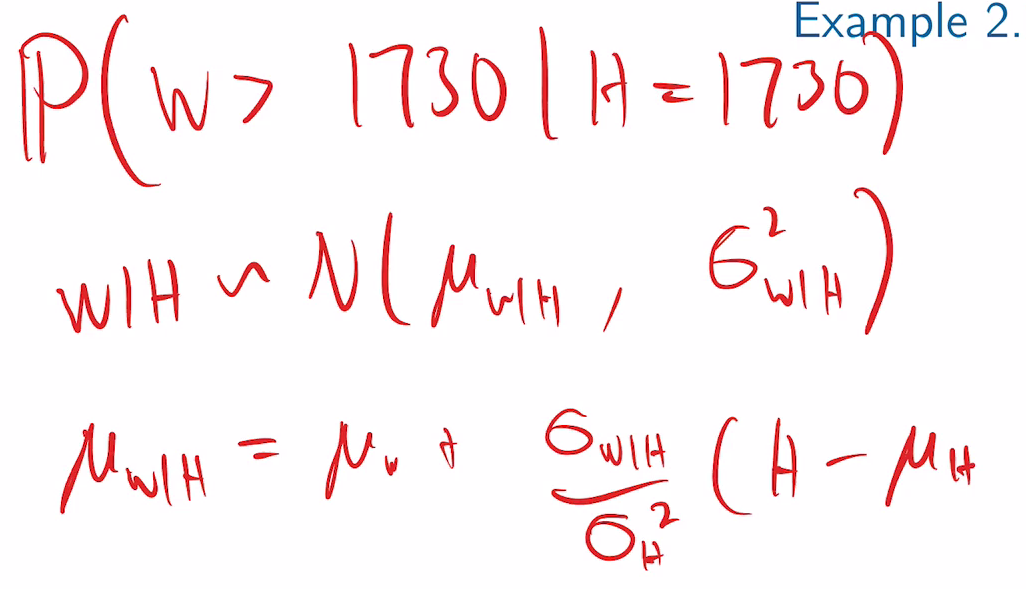 Example 2.
P(W > 1730 | H = 1730)
W|H ~ N(μ_{W|H}, σ²_{W|H})
μ_{W|H} = μ_W + σ_{W|H} / σ_H² (H - μ_H